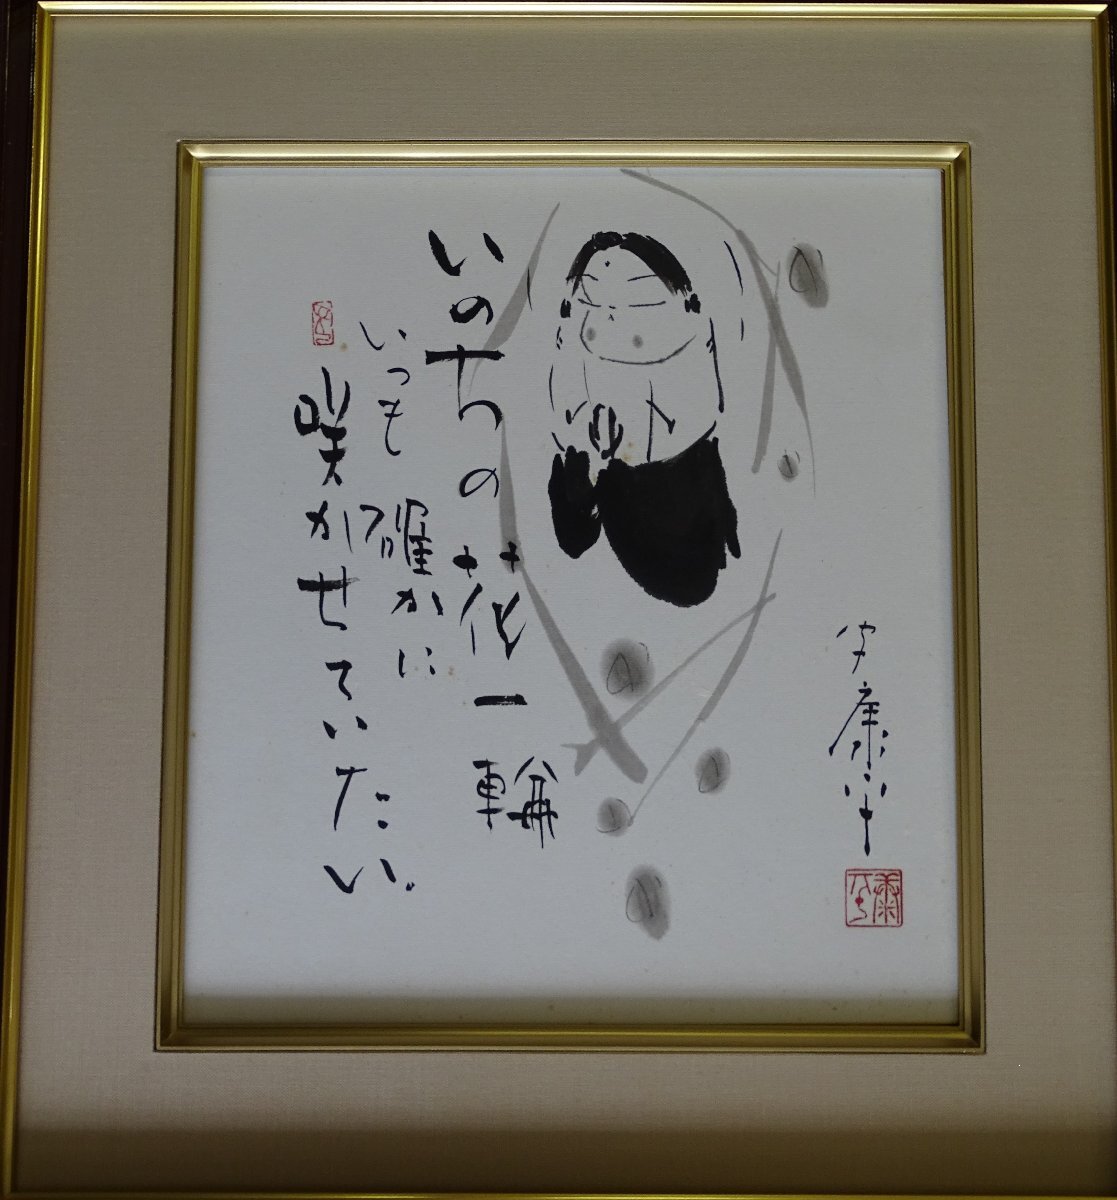 いのちの花一輪
いつも確かに
咲かせていたい。